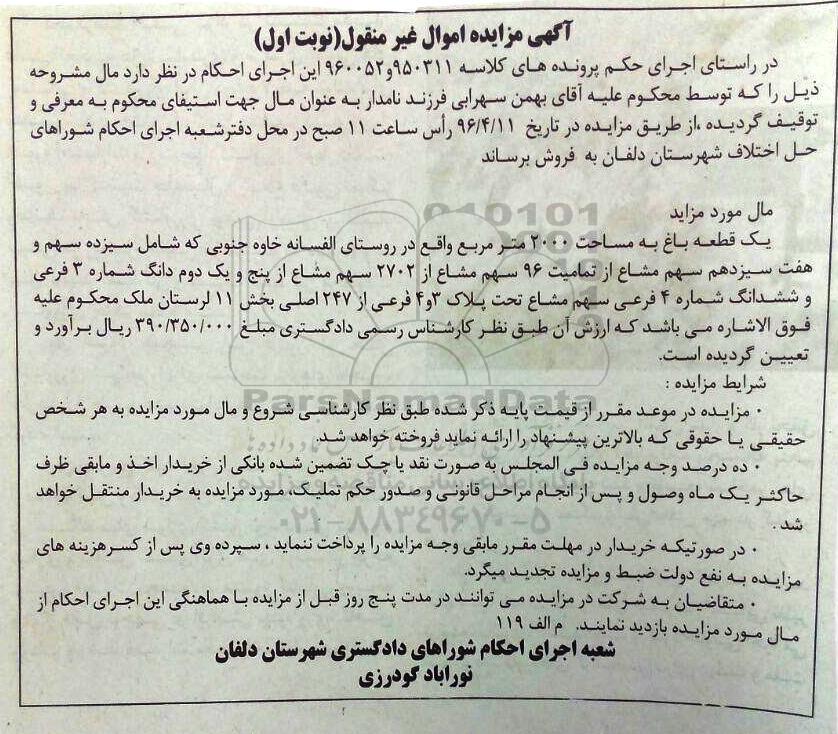 آگهی مزایده اموال غیر منقول(نوبت اول)
در راستای اجرای حکم پرونده های کلاسه ۹۵۰۳۱۱و۹۶۰۰۵۲ این اجرای احکام در نظر دارد مال مشروحه
ذیل را که توسط محکوم علیه آقای بهمن سهرابی فرزند نامدار به عنوان مال جهت استیفای محکوم به معرفی و
توقیف گردیده ،از طریق مزایده در تاریخ ۹۶/۴/۱۱ رأس ساعت ۱۱ صبح در محل دفترشعبه اجرای احکام شوراهای
حل اختلاف شهرستان دلفان به فروش برساند
مال مورد مزاید
یک قطعه باغ به مساحت ۲۰۰۰ متر مربع واقع در روستای الفسانه خاوه جنوبی که شامل سیزده سهم و
هفت سیزدهم سهم مشاع از تمامیت ۹۶ سهم مشاع از ۲۷۰۲ سهم مشاع از پنج و یک دوم دانگ شماره ۳ فرعی
و ششدانگ شماره ۴ فرعی سهم مشاع تحت پلاک ۳و۴ فرعی از ۲۴۷ اصلی بخش ۱۱ لرستان ملک محکوم علیه
فوق الاشاره می باشد که ارزش آن طبق نظر کارشناس رسمی دادگستری مبلغ ۳۹۰/۳۵۰/۰۰۰ ریال برآورد و
تعیین گردیده است.
شرایط مزایده :
· مزایده در موعد مقرر از قیمت پایه ذکر شده طبق نظر کارشناسی شروع و مال مورد مزایده به هر شخص
حقیقی یا حقوقی که بالاترین پیشنهاد را ارائه نماید فروخته خواهد شد.
· ده درصد وجه مزایده فی المجلس به صورت نقد یا چک تضمین شده بانکی از خریدار اخذ و مابقی ظرف
حاکثر یک ماه وصول و پس از انجام مراحل قانونی و صدور حکم تملیک، مورد مزایده به خریدار منتقل خواهد
شد .
· در صورتیکه خریدار در مهلت مقرر مابقی وجه مزایده را پرداخت ننماید ، سپرده وی پس از کسرهزینه های
مزایده به نفع دولت ضبط و مزایده تجدید میگرد.
· متقاضیان به شرکت در مزایده می توانند در مدت پنج روز قبل از مزایده با هماهنگی این اجرای احکام از
مال مورد مزایده بازدید نمایند. م الف ۱۱۹
شعبه اجرای احکام شوراهای دادگستری شهرستان دلفان
نوراباد گودرزی
ParsNamadData
۰۲۱-۸۸۳۴۹۶۷۰-۵